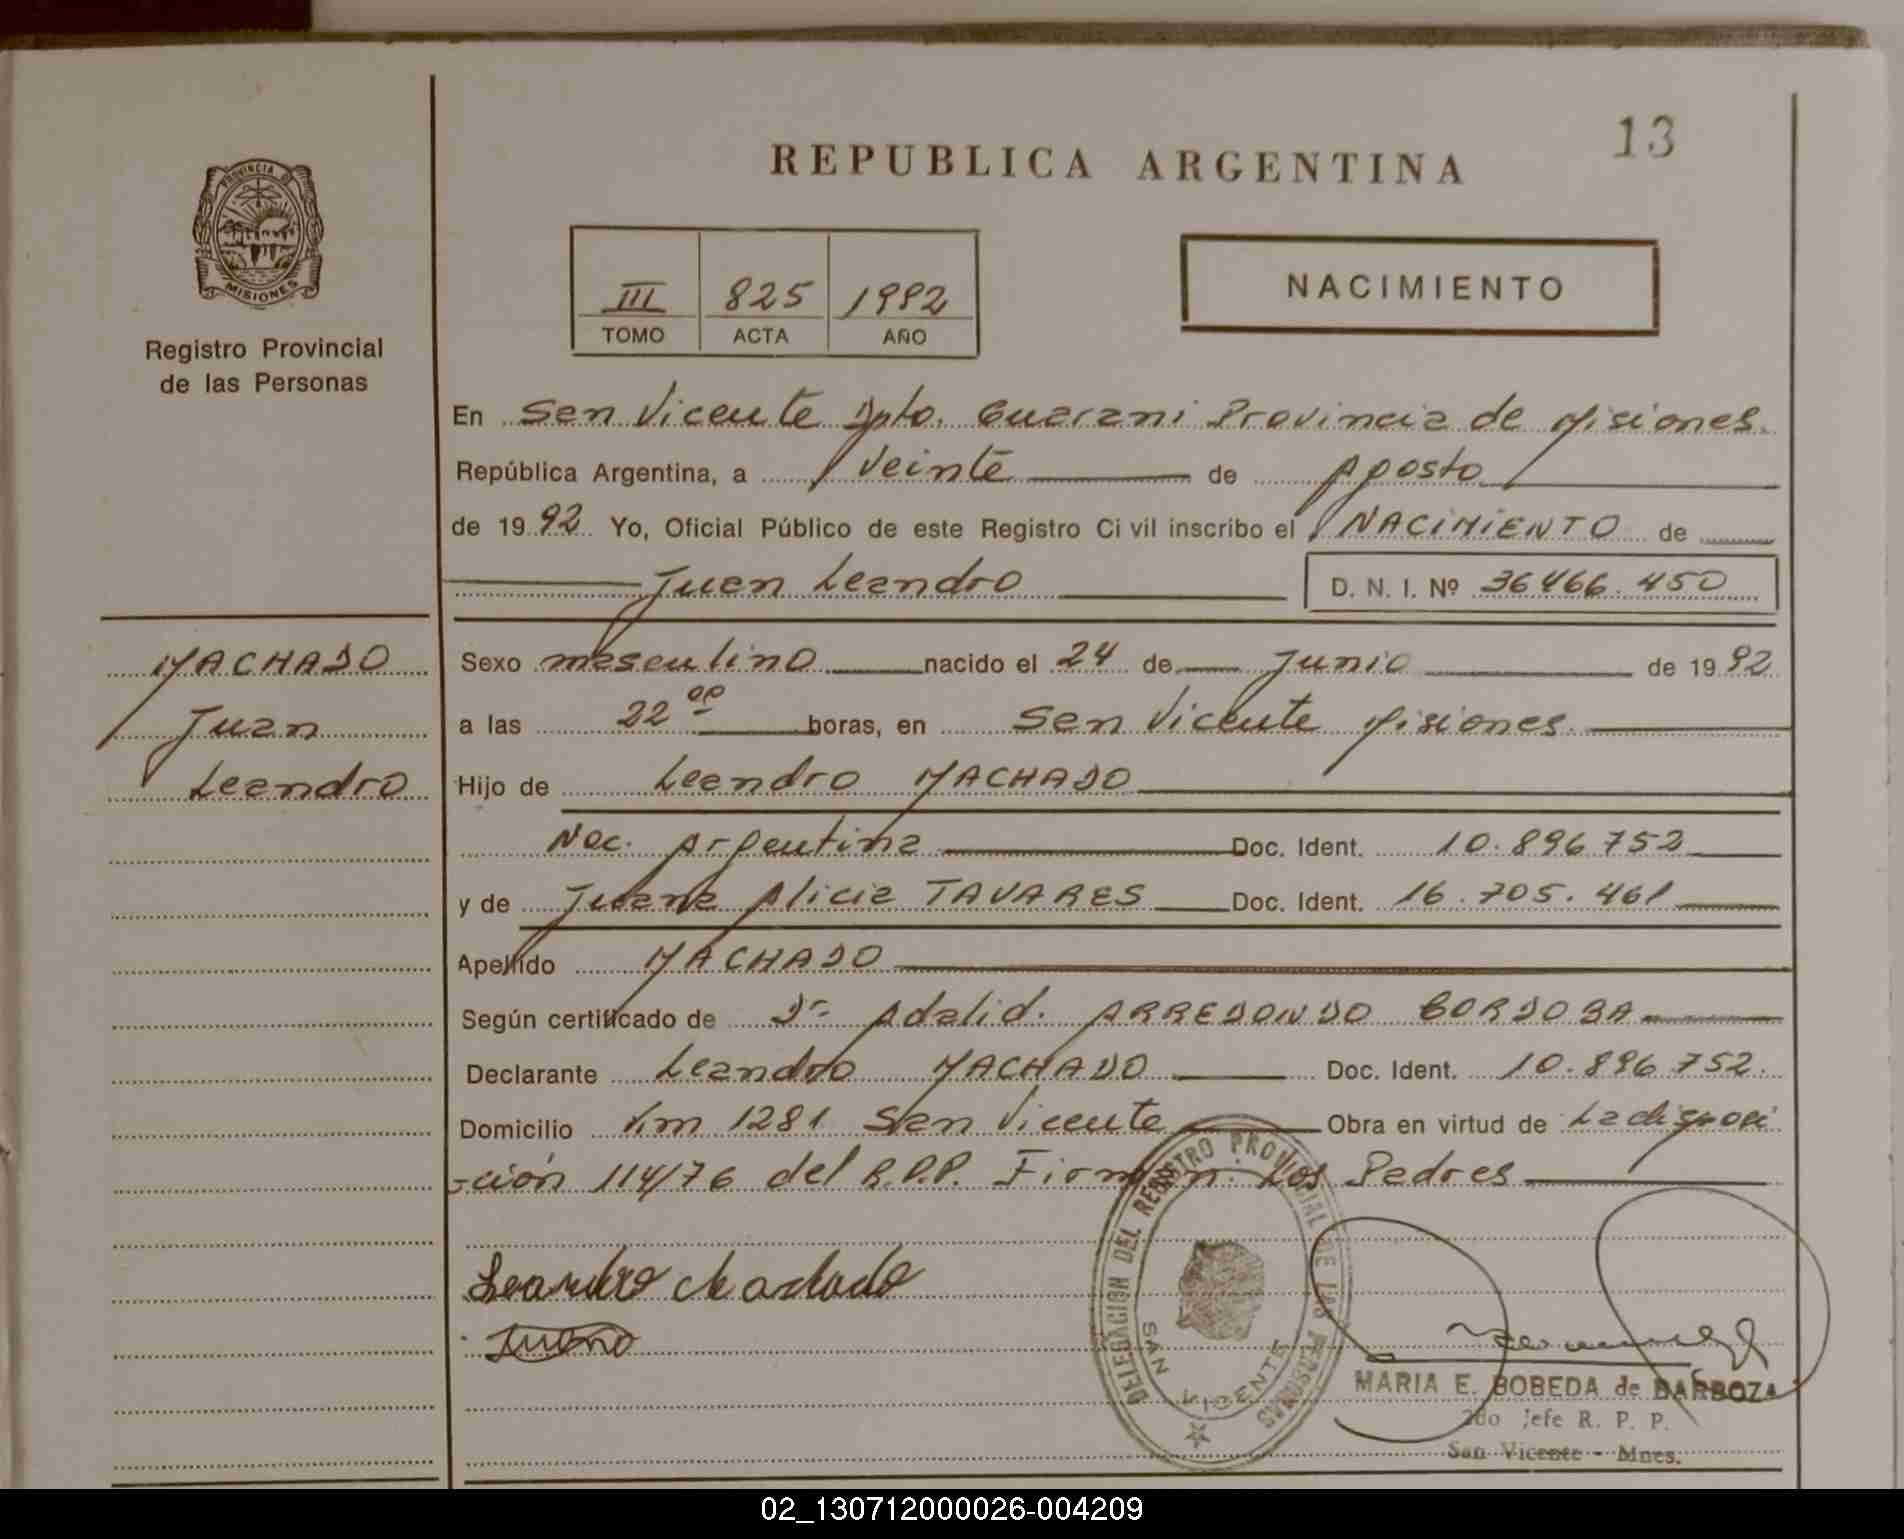 13
REPUBLICA ARGENTINA
PROVINCIA DE
MISIONES
Registro Provincial
de las Personas
III 825 1992
TOMO ACTA AÑO
NACIMIENTO
En San Vicente Dpto. Guarani Provincia de Misiones.
República Argentina, a Veinte de Agosto
de 1992. Yo, Oficial Público de este Registro Civil inscribo el NACIMIENTO de
Juan Leandro D. N. I. Nº 36466.450
MACHADO
Juan
Leandro
Sexo masculino nacido el 24 de Junio de 1992
a las 22 00 horas, en San Vicente Misiones.
Hijo de Leandro MACHADO
Nac. Argentina Doc. Ident. 10.896.752
y de Juana Alicia TAVARES Doc. Ident. 16.705.461
Apellido MACHADO
Según certificado de Dr. Adalid. ARREDONDO CORDOBA
Declarante Leandro MACHADO Doc. Ident. 10.896.752.
Domicilio Km 1281 San Vicente Obra en virtud de La disposi
-ción 114/76 del R.P.P. Firman: Los Padres
Leandro Machado
DELEGACION DEL REGISTRO PROVINCIAL DE LAS PERSONAS
SAN VICENTE
MARIA E. BOBEDA de BARBOZA
2do Jefe R. P. P.
San Vicente - Mnes.
02_130712000026-004209